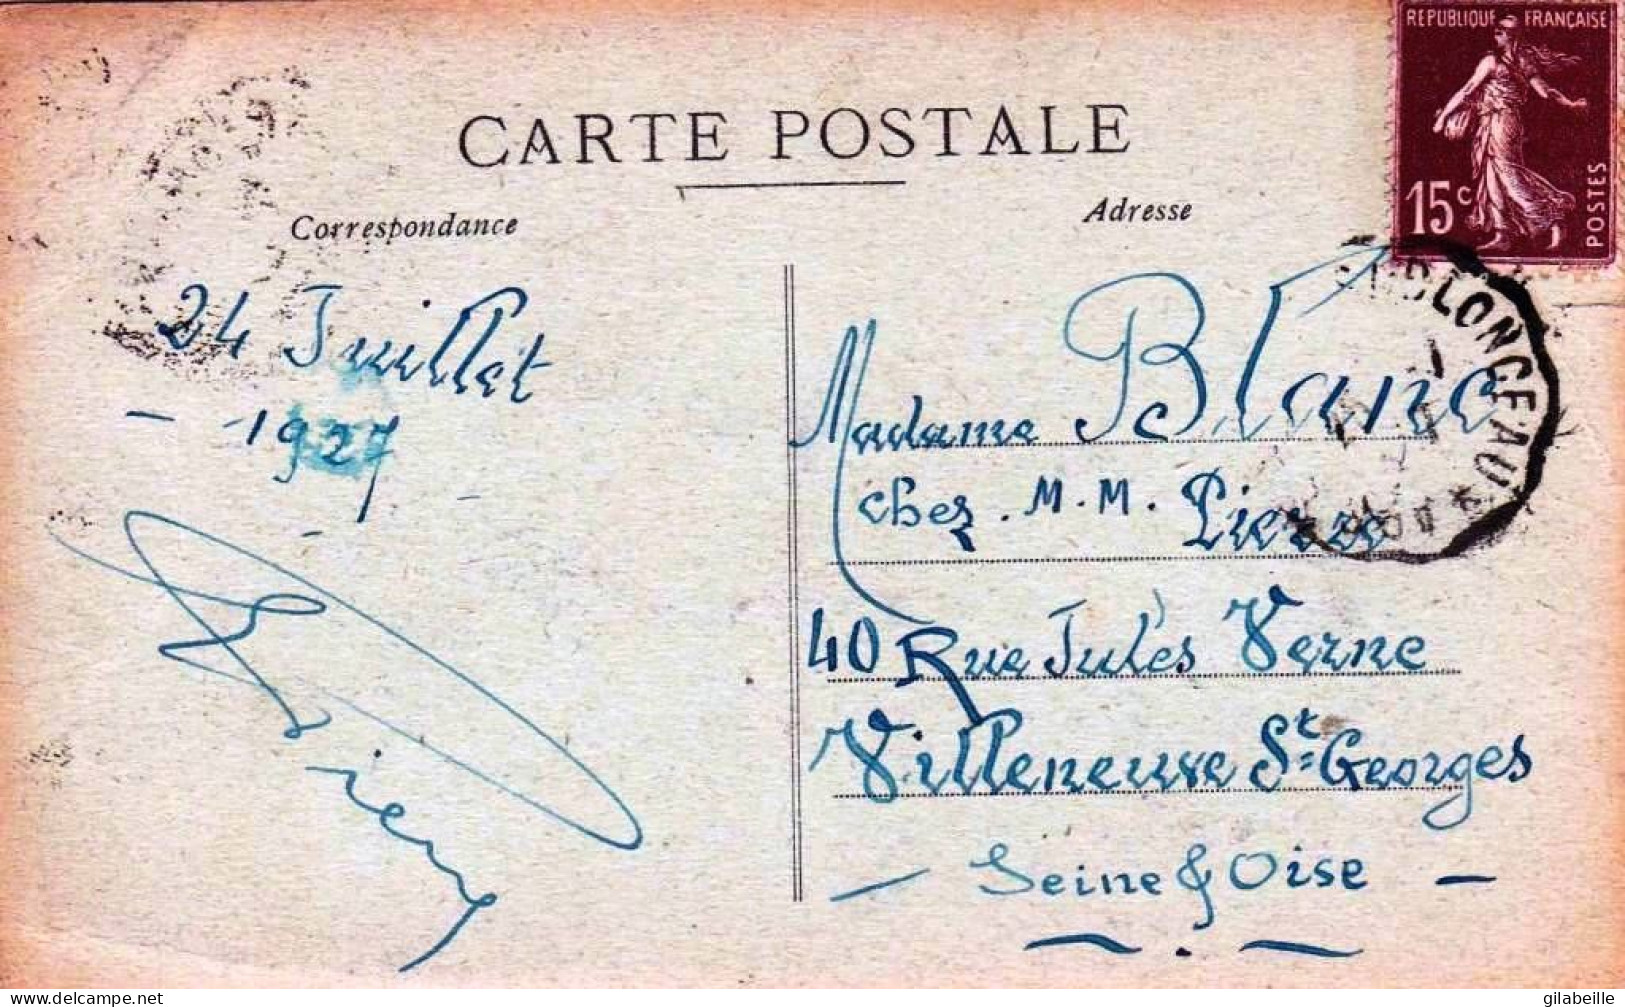 REPUBLIQUE FRANÇAISE
15c
POSTES
CARTE POSTALE
Correspondance
Adresse
24 Juillet
- 1927
Madame Blanc
chez. M.M. Pierre
40 Rue Jules Verne
Villeneuve St Georges
- Seine & Oise -
www.delcampe.net
gilabeille